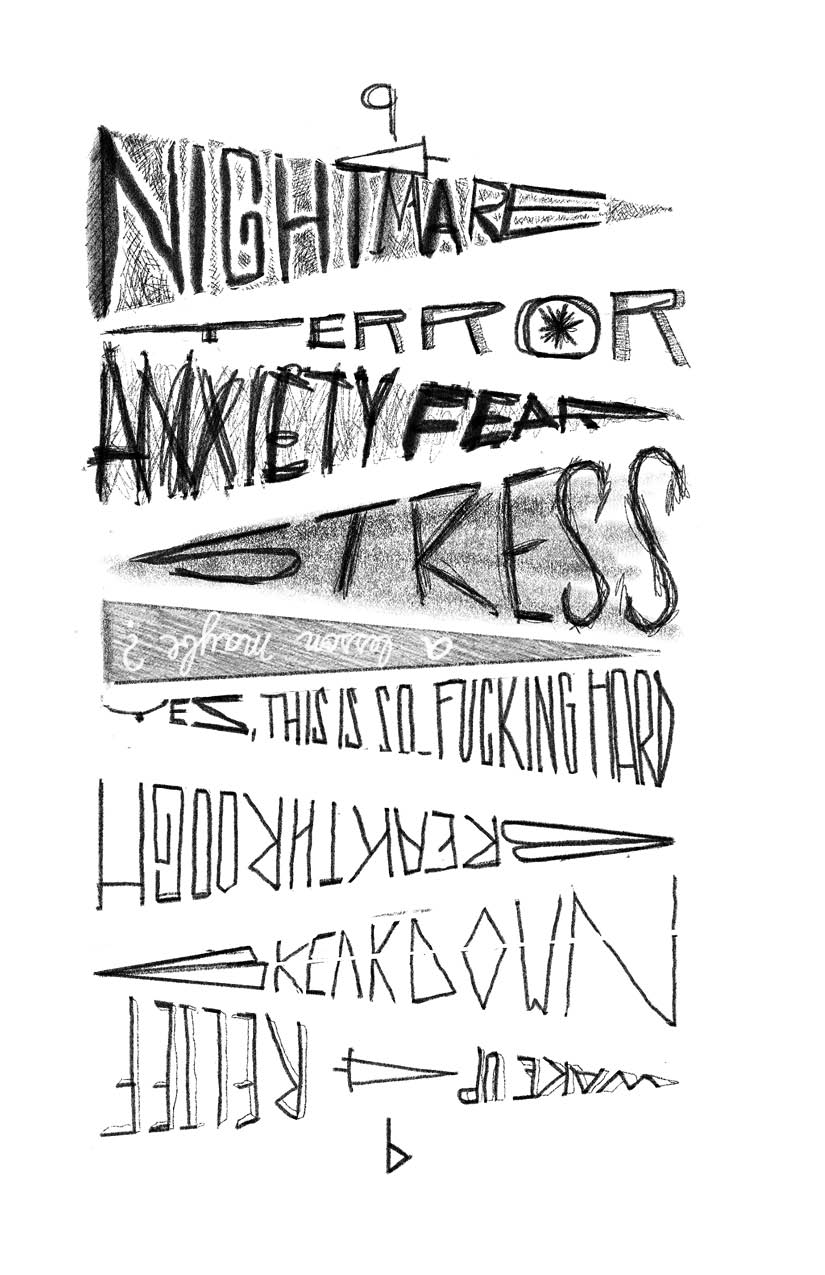 q
NIGHTMARE
TERROR
ANXIETY FEAR
STRESS
a lesson maybe ?
YES, THIS IS SO FUCKING HARD
BREAKTHROUGH
BREAKDOWN
WAKE UP
RELIEF
b